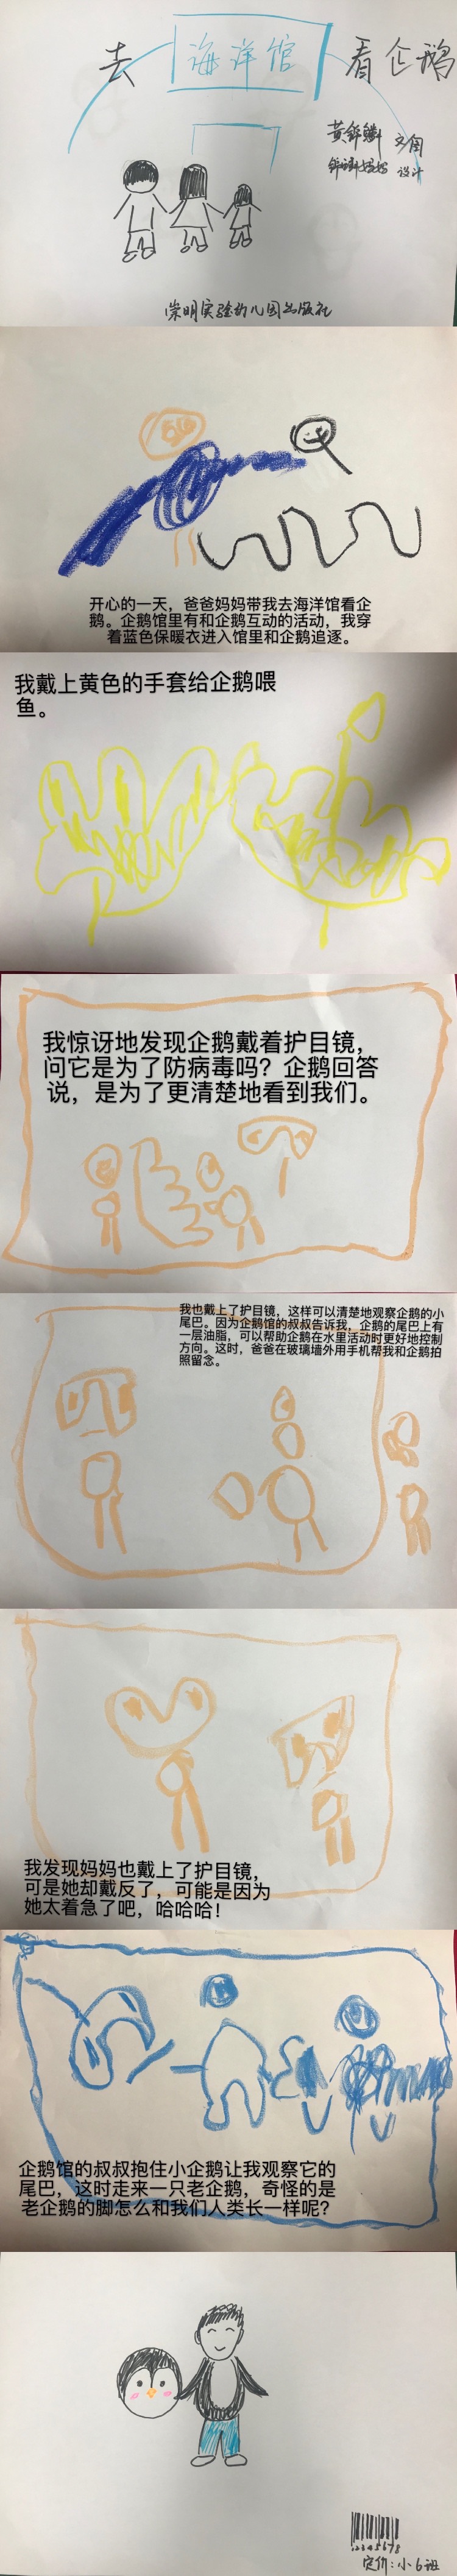 去海洋馆看企鹅
黄铧麟 文图
铧麟妈妈 设计
崇明实验幼儿园出版社
开心的一天，爸爸妈妈带我去海洋馆看企
鹅。企鹅馆里有和企鹅互动的活动，我穿
着蓝色保暖衣进入馆里和企鹅追逐。
我戴上黄色的手套给企鹅喂
鱼。
我惊讶地发现企鹅戴着护目镜，
问它是为了防病毒吗？企鹅回答
说，是为了更清楚地看到我们。
我也戴上了护目镜，这样可以清楚地观察企鹅的小
尾巴。因为企鹅馆的叔叔告诉我，企鹅的尾巴上有
一层油脂，可以帮助企鹅在水里活动时更好地控制
方向。这时，爸爸在玻璃墙外用手机帮我和企鹅拍
照留念。
我发现妈妈也戴上了护目镜，
可是她却戴反了，可能是因为
她太着急了吧，哈哈哈！
企鹅馆的叔叔抱住小企鹅让我观察它的
尾巴，这时走来一只老企鹅，奇怪的是
老企鹅的脚怎么和我们人类长一样呢？
12345678
定价：小6班